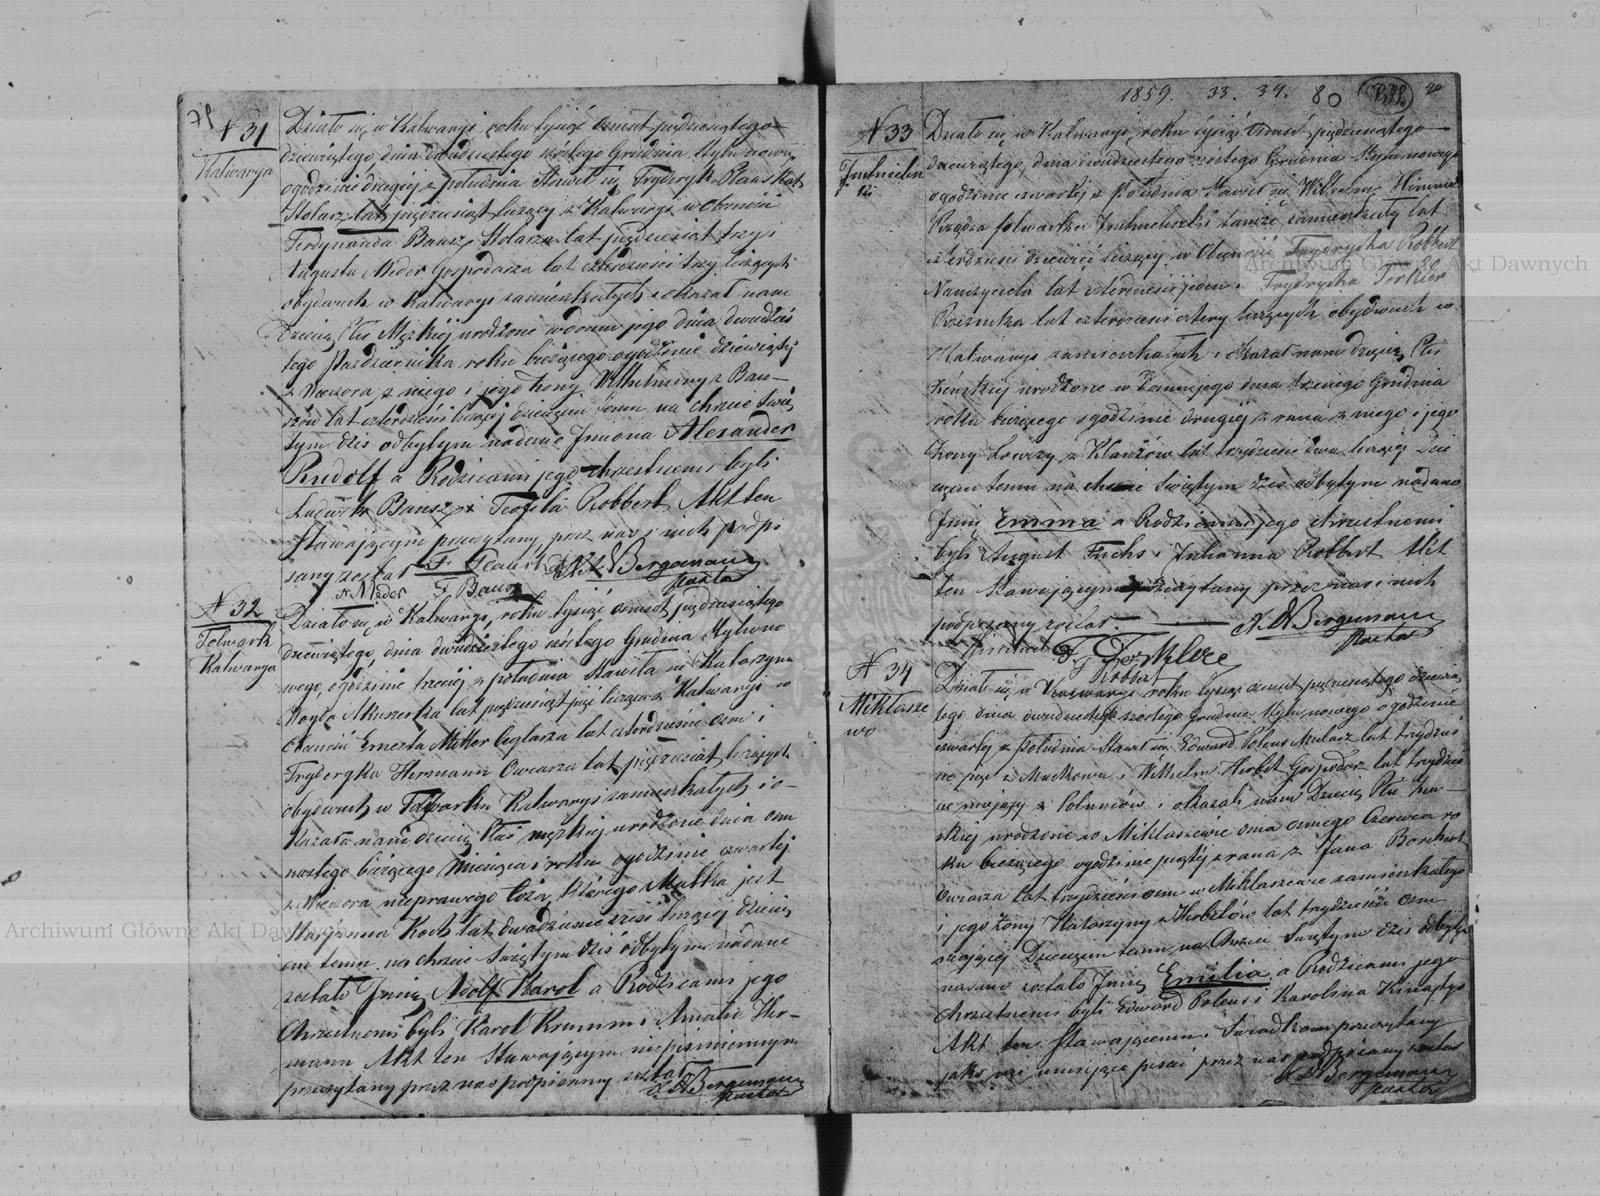 78
N 31
Kalwarya
Działo się w Kalwaryi, roku tysiąc ośmset pięćdziesiątego
dziewiątego, dnia dwudziestego szóstego Grudnia stylu nowego
o godzinie drugiej z południa Stawił się Fryderyk
Stolarz lat pięćdziesiąt liczący z Kalwaryi, w Obecności
Ferdynanda Bausz, Stolarza lat pięćdziesiąt trzy i
Augusta Meder Gospodarza lat czterdzieści trzy liczących
obydwuch w Kalwaryi zamieszkałych i okazał nam
Dziecię Płci Męzkiej urodzone w domu jego dnia dwudzies
tego Października roku bieżącego o godzinie dziewiątej
z Wieczora z niego i jego Żony Wilhelminy z Bau-
szów lat czterdzieści liczącej dziecięciu temu na chrzcie świę
tym dziś odbytym nadano Imiona Alexander
Rudolf a Rodzicami jego chrzestnemi byli
Ludwik Bausz i Teofila Robbert Akt ten
Stawającym przeczytany przez nas i nich podpi
sany został
A Meder F Bausz Bergemann
Pastor
N 32
Folwark
Kalwarya
Działo się w Kalwaryi, roku tysiąc ośmset pięćdziesiątego
dziewiątego, dnia dwudziestego szóstego Grudnia Stylu no
wego, o godzinie trzeciej z południa Stawiła się Katarzyna
Akuszerka lat pięćdziesiąt pięć licząca z Kalwaryi w
Obecności Ernesta Miller Ceglarza lat czterdzieście osm i
Fryderyka Hermann Owczarza lat pięćdziesiąt liczących
obydwuch w Folwarku Kalwaryi zamieszkałych i o-
kazała nam dziecię Płci męzkiej urodzone dnia osm
nastego bieżącego Miesiąca i roku o godzinie czwartej
z Wieczora nieprawego łoża, którego Matka jest
Maryanna Koch lat dwadzieście sześć licząca dziecię
ciu temu na chrzcie Świętym dziś odbytym nadane
zostało Imię Adolf Karol a Rodzicami jego
Chrzestnemi byli Karol Krumm i Amalie Her-
mann Akt ten Stawającym niepiśmiennym
przeczytany przez nas podpisany został
Bergemann
Pastor
1859. 33. 34. 80
N 33
Działo się w Kalwaryi, roku tysiąc ośmset pięćdziesiątego
dziewiątego, dnia dwudziestego szóstego Grudnia Stylu nowego
o godzinie czwartej z Południa Stawił się Wilhelm
Rządca folwarku tamże zamieszkały lat
czterdzieści dziewięć liczący w Obecności Fryderyka Robbert
Nauczyciela lat czterdzieści jeden i Fryderyka
Rzeźnika lat czterdzieści cztery liczących obydwuch w
Kalwaryi zamieszkałych i okazał nam dziecię Płci
Żeńskiej urodzone w Domu jego dnia trzeciego Grudnia
roku bieżącego o godzinie drugiej z rana z niego i jego
Żony Lowizy z lat trzydzieści dwa liczącej Dzie
cięciu temu na chrzcie Świętym dziś odbytym nadano
Imię Emma a Rodzicami jego chrzestnemi
byli August Fuchs i Julianna Robbert Akt
ten Stawającym przeczytany przez nas i nich
podpisany został
Bergemann
Pastor
F Robbert
N 34
Mikłasze
wo
Działo się w Kalwaryi roku tysiąc ośmset pięćdziesiątego dziewią
tego dnia dwudziestego szóstego Grudnia Stylu nowego o godzinie
czwartej z Południa Stawił się Edward Polens Mularz lat trzydzieś
ci pięć z i Wilhelm Herbst Gospodarz lat trzydzieś
ci mający z i okazali nam Dziecię Płci żeń-
skiej urodzone w Mikłaszewie dnia ósmego Czerwca ro
ku bieżącego o godzinie piątej z rana z Jana Borchert
Owczarza lat trzydzieści osm w Mikłaszewie zamieszkałego
i jego żony Katarzyny z Herbstów lat trzydzieści osm
mającej Dziecięciu temu na Chrzcie Świętym dziś odbytym
nadane zostało Imię Emilia, a Rodzicami jego
chrzestnemi byli Edward Polens i Karolina
Akt ten Stawającemu i Świadkom przeczytany
jako nie umiejące pisać przez nas podpisany został
Bergemann
Pastor
Archiwum Główne Akt Dawnych
Archiwum Główne Akt Dawnych